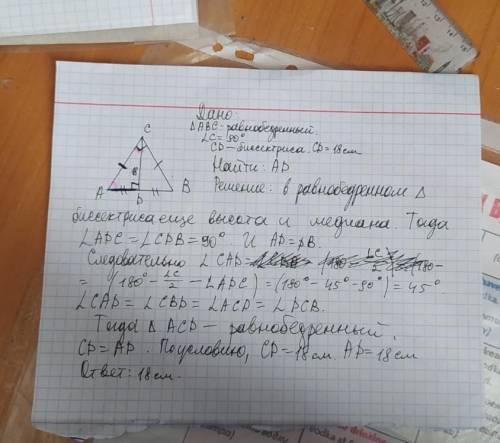 Дано:
C
△ABC - равнобедренный.
∠C = 90°
CD – биссектриса. CD = 18 см
Найти: AD
A
B
D
Решение: в равнобедренном △
биссектриса еще высота и медиана. Тогда
∠ADC = ∠CDB = 90°. И AD = DB.
Следовательно ∠CAD =
= (180° - ∠C/2 - ∠ADC) = (180° - 45° - 90°) = 45°
∠CAD = ∠CBD = ∠ACD = ∠DCB.
Тогда △ ACD – равнобедренный,
CD = AD. По условию, CD = 18 см. AD = 18 см
Ответ: 18 см.